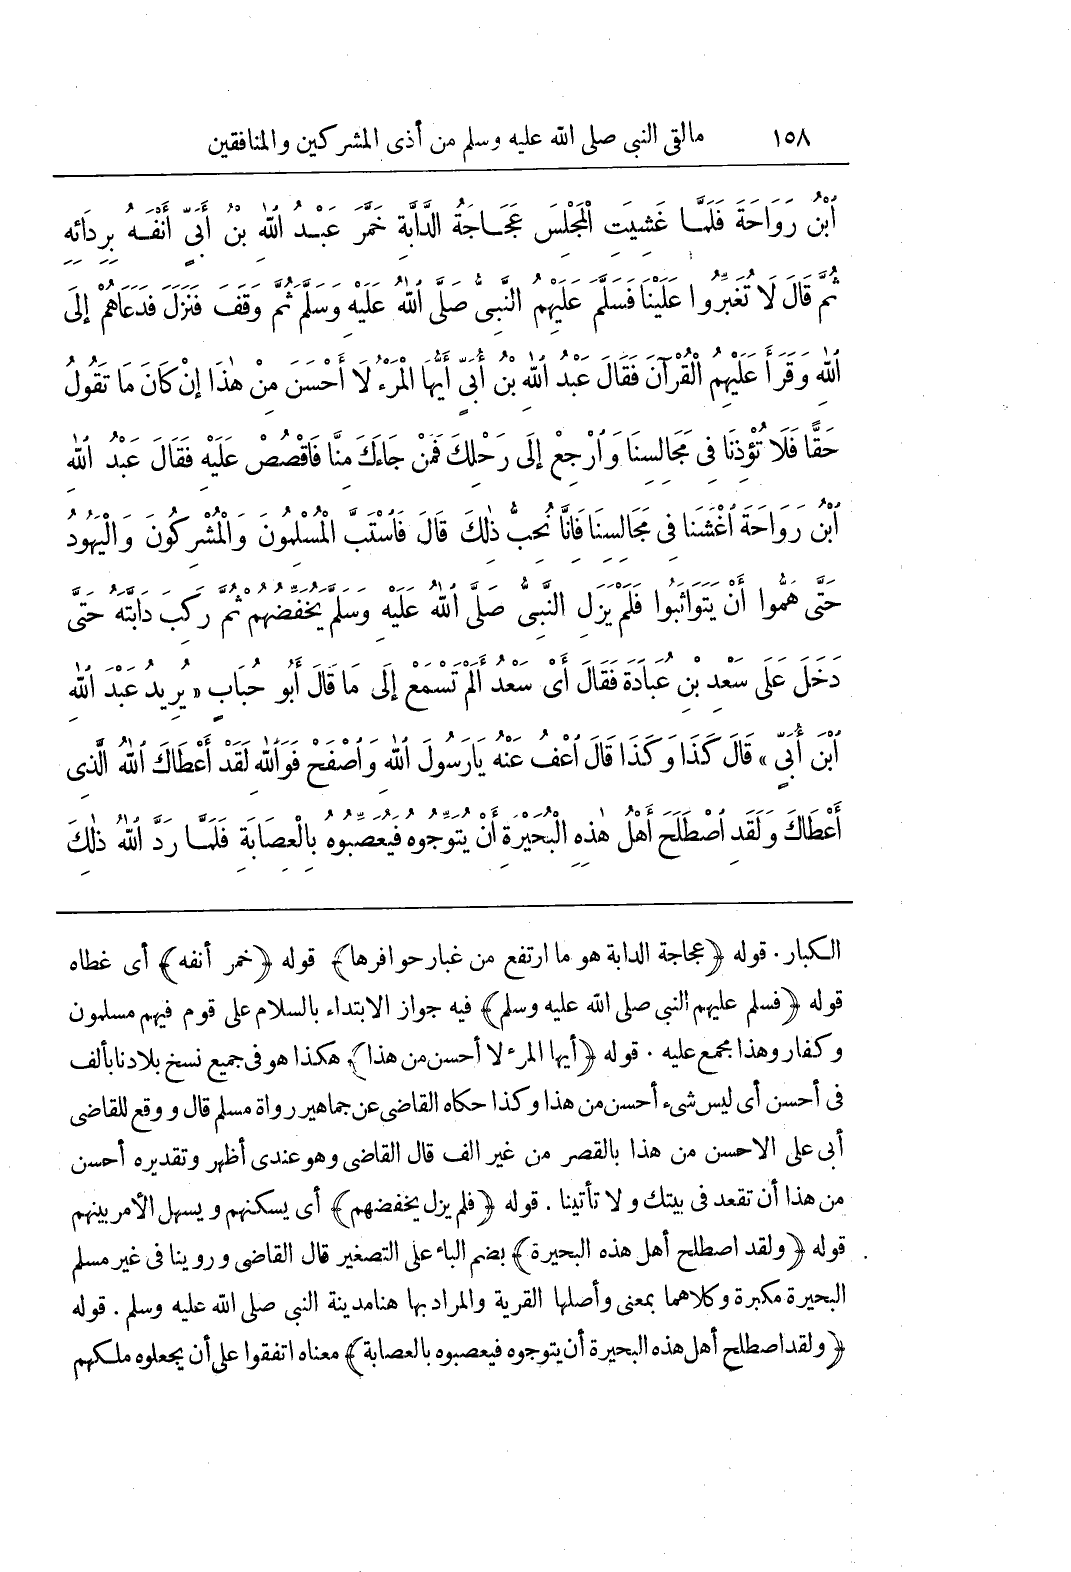 ١٥٨ مالقى النبى صلى الله عليه وسلم من أذى المشركين والمنافقين
ٱبْنُ رَوَاحَةَ فَلَمَّا غَشِيَتِ الْمَجْلِسَ عَجَاجَةُ الدَّابَّةِ خَمَّرَ عَبْدُ ٱللهِ بْنُ أُبَىٍّ أَنْفَهُ بِرِدَائِهِ
ثُمَّ قَالَ لَا تُغَبِّرُوا عَلَيْنَا فَسَلَّمَ عَلَيْهِمُ النَّبِىُّ صَلَّى ٱللهُ عَلَيْهِ وَسَلَّمَ ثُمَّ وَقَفَ فَنَزَلَ فَدَعَاهُمْ إِلَى
ٱللهِ وَقَرَأَ عَلَيْهِمُ الْقُرْآنَ فَقَالَ عَبْدُ ٱللهِ بْنُ أُبَىٍّ أَيُّهَا الْمَرْءُ لَا أَحْسَنَ مِنْ هٰذَا إِنْ كَانَ مَا تَقُولُ
حَقًّا فَلَا تُؤْذِنَا فِى مَجَالِسِنَا وَٱرْجِعْ إِلَى رَحْلِكَ فَمَنْ جَاءَكَ مِنَّا فَاقْصُصْ عَلَيْهِ فَقَالَ عَبْدُ ٱللهِ
ٱبْنُ رَوَاحَةَ ٱغْشَنَا فِى مَجَالِسِنَا فَانَّا نُحِبُّ ذٰلِكَ قَالَ فَاسْتَبَّ الْمُسْلِمُونَ وَالْمُشْرِكُونَ وَالْيَهُودُ
حَتَّى هَمُّوا أَنْ يَتَوَاثَبُوا فَلَمْ يَزَلِ النَّبِىُّ صَلَّى ٱللهُ عَلَيْهِ وَسَلَّمَ يُخَفِّضُهُمْ ثُمَّ رَكِبَ دَابَّتَهُ حَتَّى
دَخَلَ عَلَى سَعْدِ بْنِ عُبَادَةَ فَقَالَ أَىْ سَعْدُ أَلَمْ تَسْمَعْ إِلَى مَا قَالَ أَبُو حُبَابٍ « يُرِيدُ عَبْدَ ٱللهِ
ٱبْنَ أُبَىٍّ » قَالَ كَذَا وَكَذَا قَالَ ٱعْفُ عَنْهُ يَارَسُولَ ٱللهِ وَٱصْفَحْ فَوَٱللهِ لَقَدْ أَعْطَاكَ ٱللهُ الَّذِى
أَعْطَاكَ وَلَقَدِ ٱصْطَلَحَ أَهْلُ هٰذِهِ الْبُحَيْرَةِ أَنْ يُتَوِّجُوهُ فَيُعَصِّبُوهُ بِالْعِصَابَةِ فَلَمَّا رَدَّ ٱللهُ ذٰلِكَ
الكبار . قوله ﴿عجاجة الدابة هو ما ارتفع من غبار حوافرها﴾ قوله ﴿خمر أنفه﴾ أى غطاه
قوله ﴿فسلم عليهم النبى صلى الله عليه وسلم﴾ فيه جواز الابتداء بالسلام على قوم فيهم مسلمون
وكفار وهذا مجمع عليه . قوله ﴿أيها المرء لا أحسن من هذا﴾ هكذا هو فى جميع نسخ بلادنا بألف
فى أحسن أى ليس شىء أحسن من هذا وكذا حكاه القاضى عن جماهير رواة مسلم قال ووقع للقاضى
أبى على الاحسن من هذا بالقصر من غير الف قال القاضى وهو عندى أظهر وتقديره أحسن
من هذا أن تقعد فى بيتك ولا تأتينا . قوله ﴿فلم يزل يخفضهم﴾ أى يسكنهم ويسهل الأمر بينهم
قوله ﴿ولقد اصطلح أهل هذه البحيرة﴾ بضم الباء على التصغير قال القاضى وروينا فى غير مسلم
البحيرة مكبرة وكلاهما بمعنى وأصلها القرية والمراد بها هنا مدينة النبى صلى الله عليه وسلم . قوله
﴿ولقد اصطلح أهل هذه البحيرة أن يتوجوه فيعصبوه بالعصابة﴾ معناه اتفقوا على أن يجعلوه ملكهم